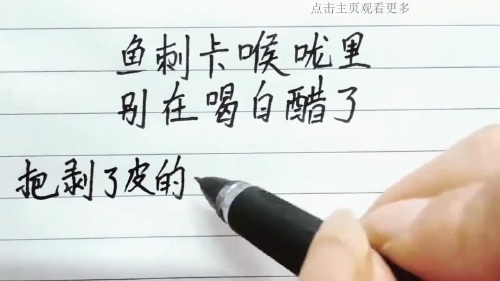 点击主页观看更多
鱼刺卡喉咙里
别在喝白醋了
把剥了皮的